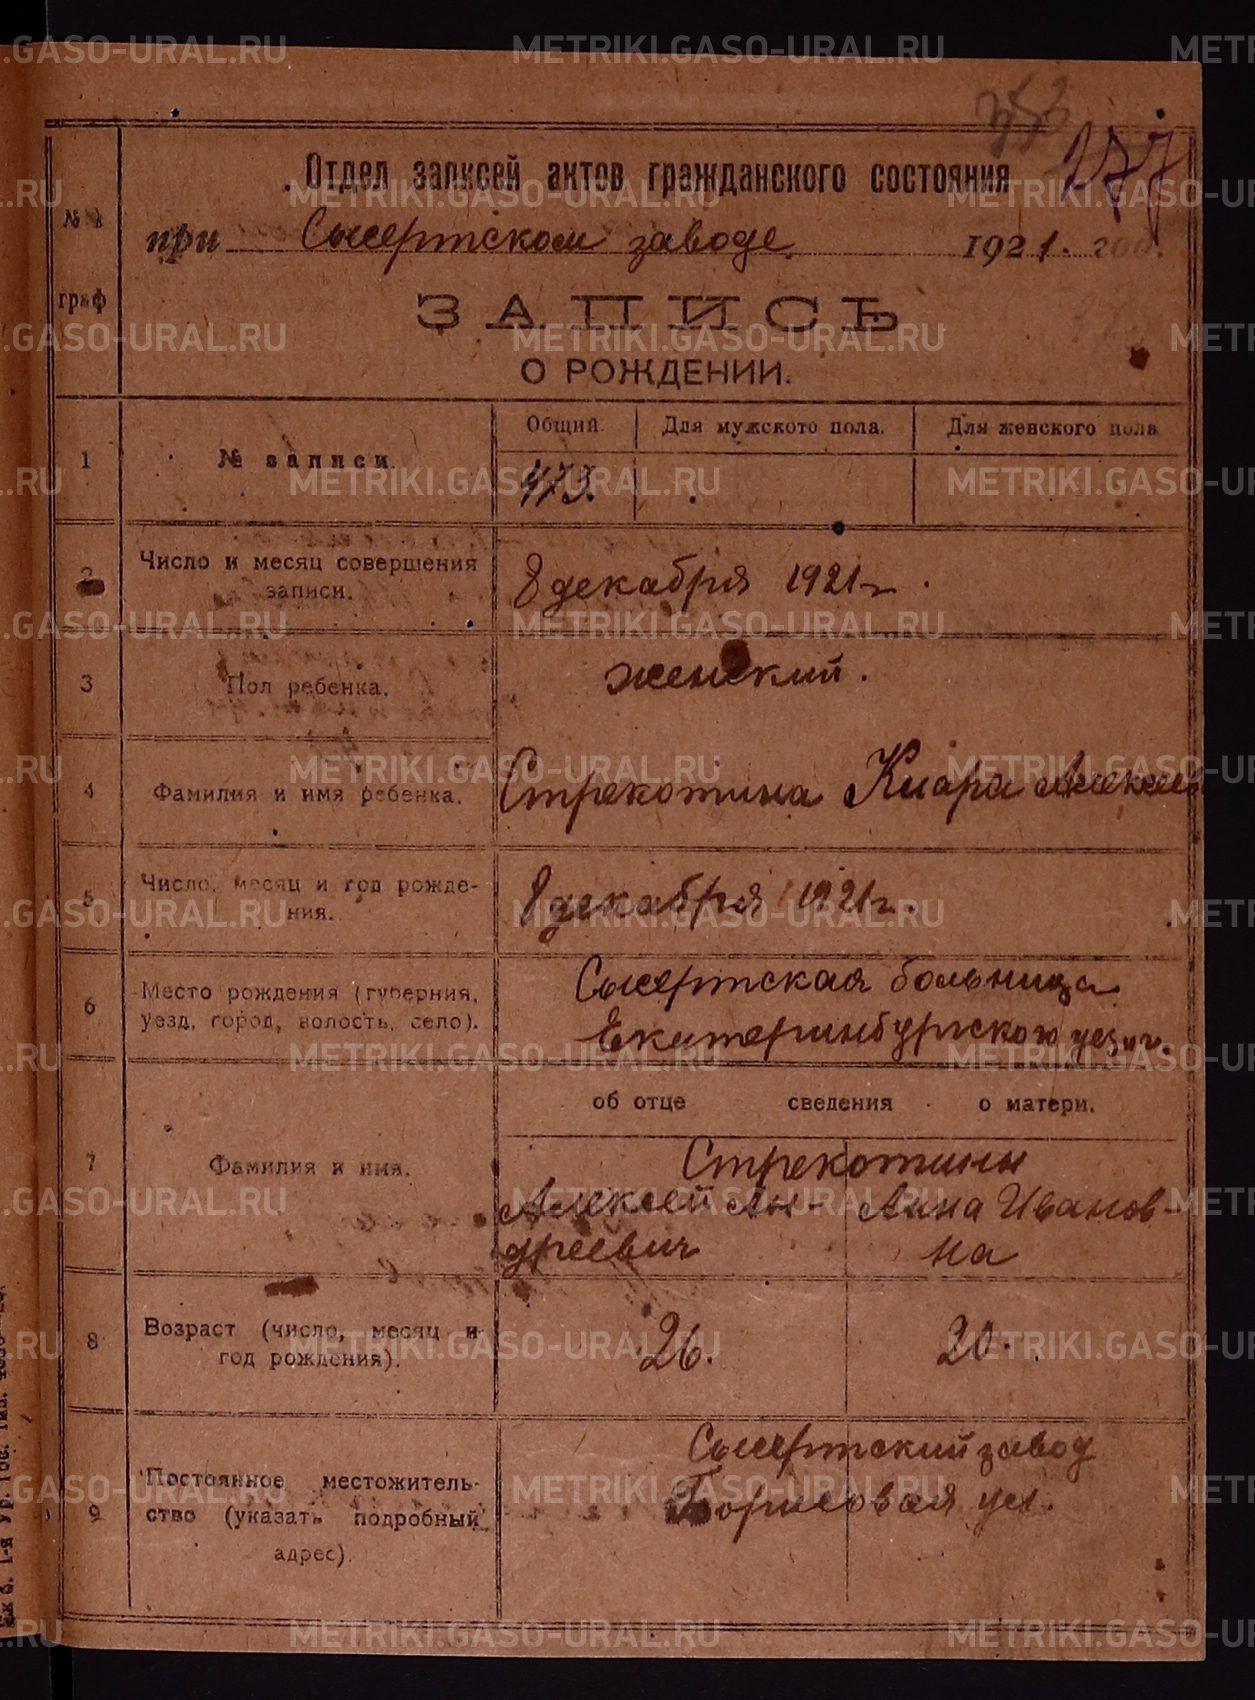 353
177
Отдел записей актов гражданского состояния
при Сысертском заводе. 1921. год.
№№ граф
ЗАПИСЬ
О РОЖДЕНИИ.
1 № записи. Общий. Для мужского пола. Для женского пола
473.
2 Число и месяц совершения записи. 8 декабря 1921 г.
3 Пол ребенка. женский.
4 Фамилия и имя ребенка. Стрекотина Клара Алексеев
5 Число, месяц и год рожде-
ния. 8 декабря 1921 г.
6 Место рождения (губерния, Сысертская больница
уезд, город, волость, село). Екатеринбургского
об отце сведения о матери.
7 Фамилия и имя. Стрекотины
Алексей Ан- Анна Иванов-
дреевич на
8 Возраст (число, месяц и
год рождения). 26. 20.
9 Постоянное местожитель- Сысертский завод
ство (указать подробный Борисовая ул.
адрес).
METRIKI.GASO-URAL.RU